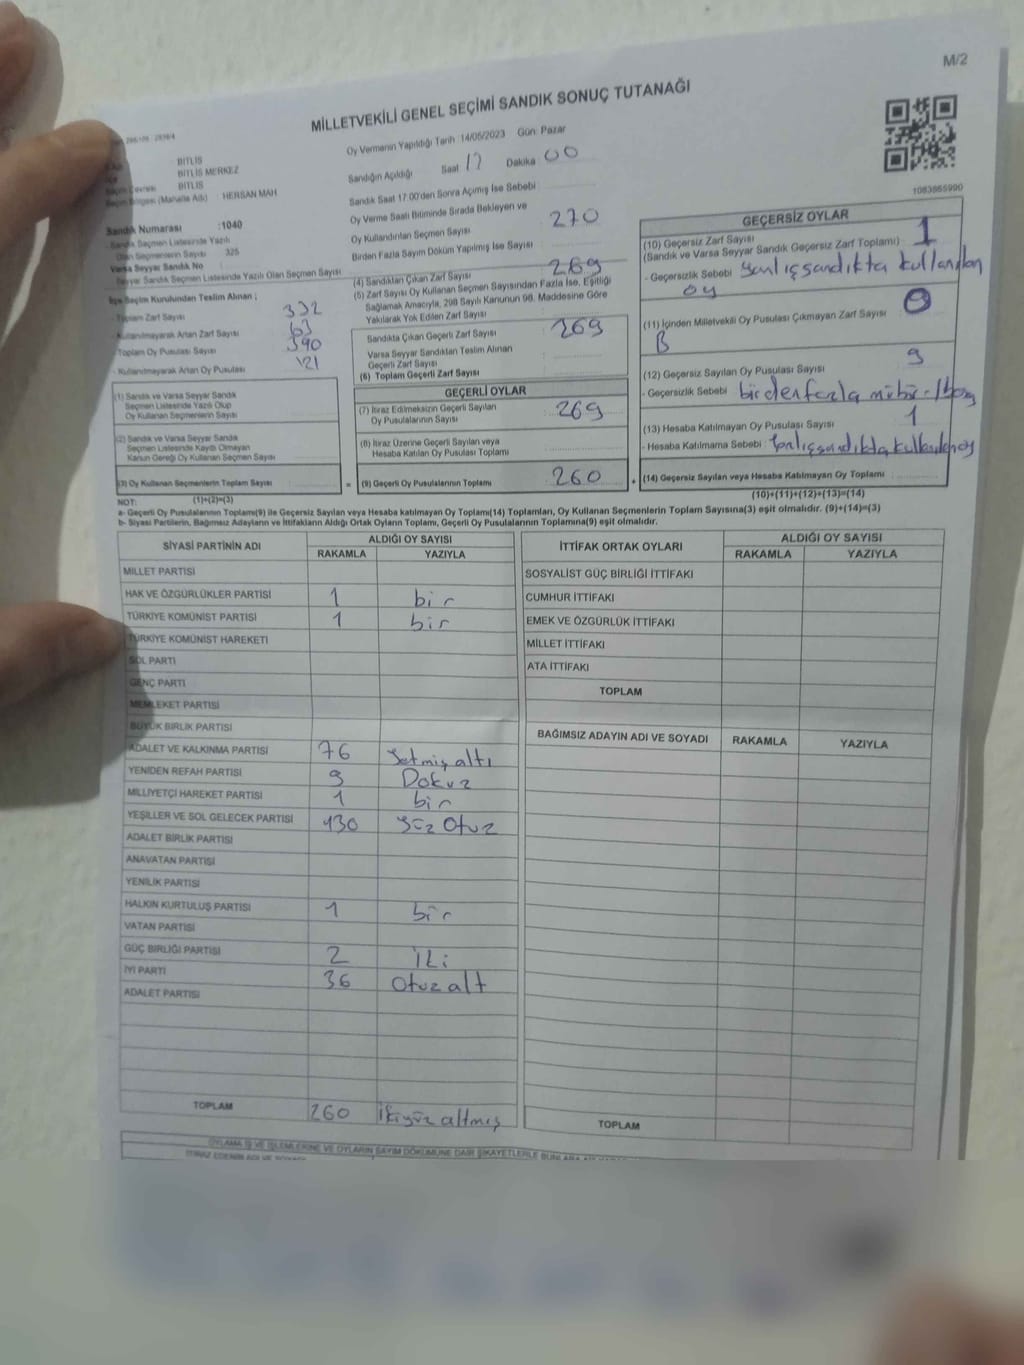 M/2
MİLLETVEKİLİ GENEL SEÇİMİ SANDIK SONUÇ TUTANAĞI
Oy Vermenin Yapıldığı Tarih :14/05/2023 Gün: Pazar
BİTLİS
BİTLİS MERKEZ
BİTLİS
Seçim Bölgesi (Mahalle Adı) : HERSAN MAH
Sandık Numarası :1040
- Sandık Seçmen Listesinde Yazılı
Olan Seçmenlerin Sayısı 325
Varsa Seyyar Sandık No
Seyyar Sandık Seçmen Listesinde Yazılı Olan Seçmen Sayısı
İlçe Seçim Kurulundan Teslim Alınan ;
- Toplam Zarf Sayısı 332
- Kullanılmayarak Artan Zarf Sayısı 63
- Toplam Oy Pusulası Sayısı 390
- Kullanılmayarak Artan Oy Pusulası 121
(1) Sandık ve Varsa Seyyar Sandık
Seçmen Listesinde Yazılı Olup
Oy Kullanan Seçmenlerin Sayısı
(2) Sandık ve Varsa Seyyar Sandık
Seçmen Listesinde Kayıtlı Olmayan
Kanun Gereği Oy Kullanan Seçmen Sayısı
(3) Oy Kullanan Seçmenlerin Toplam Sayısı
Sandığın Açıldığı Saat 17 Dakika 00
Sandık Saat 17.00'den Sonra Açılmış İse Sebebi
Oy Verme Saati Bitiminde Sırada Bekleyen ve
Oy Kullandırılan Seçmen Sayısı 270
Birden Fazla Sayım Döküm Yapılmış İse Sayısı
(4) Sandıktan Çıkan Zarf Sayısı 269
(5) Zarf Sayısı Oy Kullanan Seçmen Sayısından Fazla İse, Eşitliği
Sağlamak Amacıyla, 298 Sayılı Kanunun 98. Maddesine Göre
Yakılarak Yok Edilen Zarf Sayısı
Sandıkta Çıkan Geçerli Zarf Sayısı 269
Varsa Seyyar Sandıktan Teslim Alınan
Geçerli Zarf Sayısı
(6) Toplam Geçerli Zarf Sayısı
GEÇERLİ OYLAR
(7) İtiraz Edilmeksizin Geçerli Sayılan
Oy Pusulasının Sayısı 269
(8) İtiraz Üzerine Geçerli Sayılan veya
Hesaba Katılan Oy Pusulası Toplamı
= (9) Geçerli Oy Pusulalarının Toplamı 260 +
1083865990
GEÇERSİZ OYLAR
(10) Geçersiz Zarf Sayısı 1
(Sandık ve Varsa Seyyar Sandık Geçersiz Zarf Toplamı)
- Geçersizlik Sebebi yanlış sandıkta kullanılan
oy
(11) İçinden Milletvekili Oy Pusulası Çıkmayan Zarf Sayısı 0
(12) Geçersiz Sayılan Oy Pusulası Sayısı 9
- Geçersizlik Sebebi birden fazla mühür
(13) Hesaba Katılmayan Oy Pusulası Sayısı 1
- Hesaba Katılmama Sebebi : Yanlış sandıkta kullanılan oy
(14) Geçersiz Sayılan veya Hesaba Katılmayan Oy Toplamı
NOT: (1)+(2)=(3) (10)+(11)+(12)+(13)=(14)
a- Geçerli Oy Pusulalarının Toplamı(9) ile Geçersiz Sayılan veya Hesaba katılmayan Oy Toplamı(14) Toplamları, Oy Kullanan Seçmenlerin Toplam Sayısına(3) eşit olmalıdır. (9)+(14)=(3)
b- Siyasi Partilerin, Bağımsız Adayların ve İttifakların Aldığı Ortak Oyların Toplamı, Geçerli Oy Pusulalarının Toplamına(9) eşit olmalıdır.
SİYASİ PARTİNİN ADI ALDIĞI OY SAYISI
RAKAMLA YAZIYLA
MİLLET PARTİSİ
HAK VE ÖZGÜRLÜKLER PARTİSİ 1 bir
TÜRKİYE KOMÜNİST PARTİSİ 1 bir
TÜRKİYE KOMÜNİST HAREKETİ
SOL PARTİ
GENÇ PARTİ
MEMLEKET PARTİSİ
BÜYÜK BİRLİK PARTİSİ
ADALET VE KALKINMA PARTİSİ 76 Yetmiş altı
YENİDEN REFAH PARTİSİ 9 Dokuz
MİLLİYETÇİ HAREKET PARTİSİ 1 bir
YEŞİLLER VE SOL GELECEK PARTİSİ 130 Yüz Otuz
ADALET BİRLİK PARTİSİ
ANAVATAN PARTİSİ
YENİLİK PARTİSİ
HALKIN KURTULUŞ PARTİSİ 1 bir
VATAN PARTİSİ
GÜÇ BİRLİĞİ PARTİSİ 2 iki
İYİ PARTİ 36 Otuz alt
ADALET PARTİSİ
TOPLAM 260 İkiyüz altmış
İTTİFAK ORTAK OYLARI ALDIĞI OY SAYISI
RAKAMLA YAZIYLA
SOSYALİST GÜÇ BİRLİĞİ İTTİFAKI
CUMHUR İTTİFAKI
EMEK VE ÖZGÜRLÜK İTTİFAKI
MİLLET İTTİFAKI
ATA İTTİFAKI
TOPLAM
BAĞIMSIZ ADAYIN ADI VE SOYADI RAKAMLA YAZIYLA
TOPLAM
OYLAMA İŞ VE İŞLEMLERİNE VE OYLARIN SAYIM DÖKÜMÜNE DAİR ŞİKAYETLERLE BUNLARA